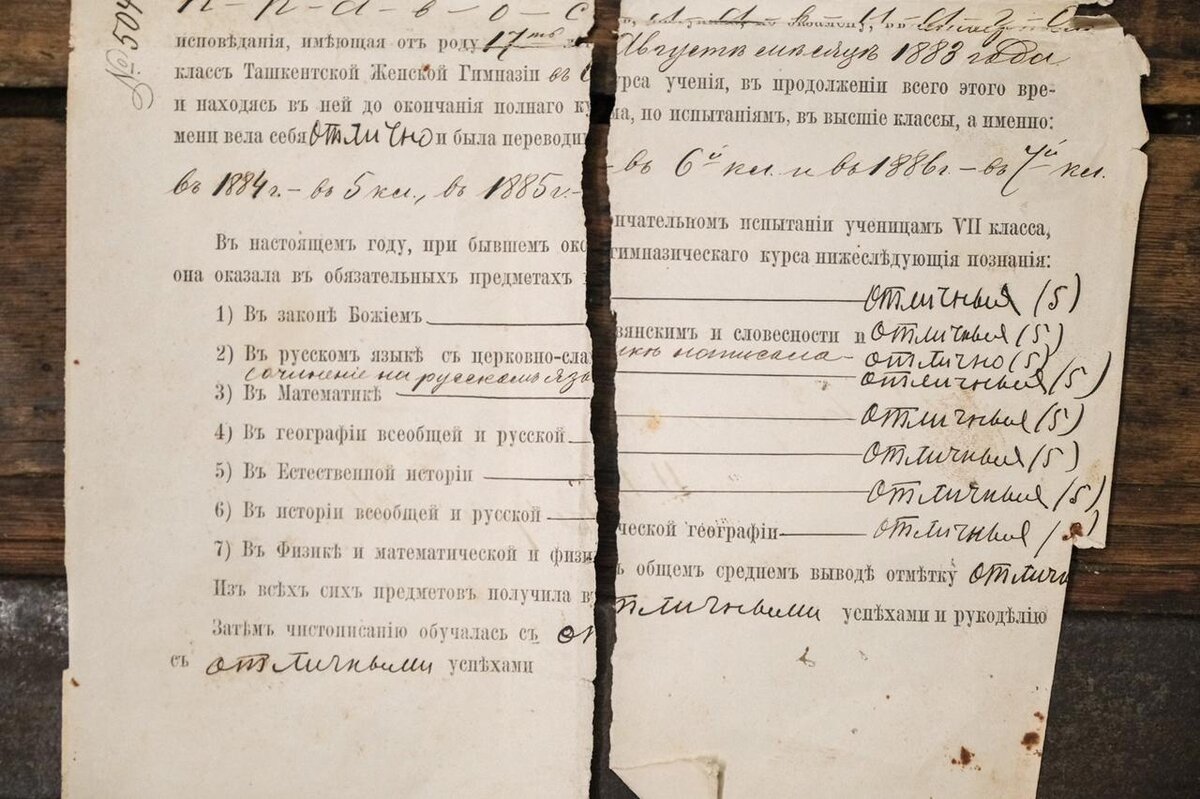 № 504
п – р – а – в – о – с
исповѣданія, имѣющая отъ роду 17ть
Августѣ мѣсяцѣ 1883 года
классъ Ташкентской Женской Гимназіи въ
и находясь въ ней до окончанія полнаго курса ученія, въ продолженіи всего этого вре-
мени вела себя отлично и была переводима, по испытаніямъ, въ высшіе классы, а именно:
въ 1884 г. – въ 5 кл., въ 1885 г. – въ 6й кл. и въ 1886 г. – въ 7й кл.
Въ настоящемъ году, при бывшемъ окончательномъ испытаніи ученицамъ VII класса,
она оказала въ обязательныхъ предметахъ гимназическаго курса нижеслѣдующія познанія:
1) Въ законѣ Божіемъ отличныя (5)
2) Въ русскомъ языкѣ съ церковно-славянскимъ и словесности отличныя (5)
сочиненіе на русскомъ языкѣ написала – отлично (5)
3) Въ Математикѣ отличныя (5)
4) Въ географіи всеобщей и русской отличныя (5)
5) Въ Естественной исторіи отличныя (5)
6) Въ исторіи всеобщей и русской отличныя (5)
7) Въ Физикѣ и математической и физической географіи отличныя (5)
Изъ всѣхъ сихъ предметовъ получила въ общемъ среднемъ выводѣ отмѣтку отличн
Затѣмъ чистописанію обучалась съ отличными успѣхами и рукодѣлію
съ отличными успѣхами